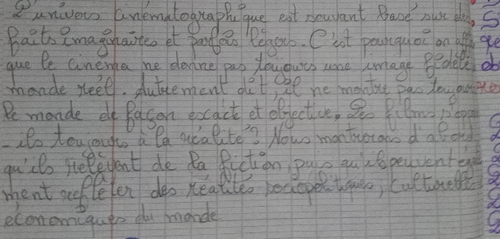 L'univers cinématographique est souvent basé sur des
faits imaginaires et parfois légers. C'est pourquoi on
que le cinema ne donne pas toujours une image fidèle
monde réel. Autrement dit, il ne montre pas toujours
le monde de façon exacte et objective. Les films
-ils toujours à la réalité? Nous montrerons d'abord
qu'ils relèvent de la fiction, puis qu'ils peuvent éga
ment refléter des réalités sociopolitiques, culturelles
économiques du monde